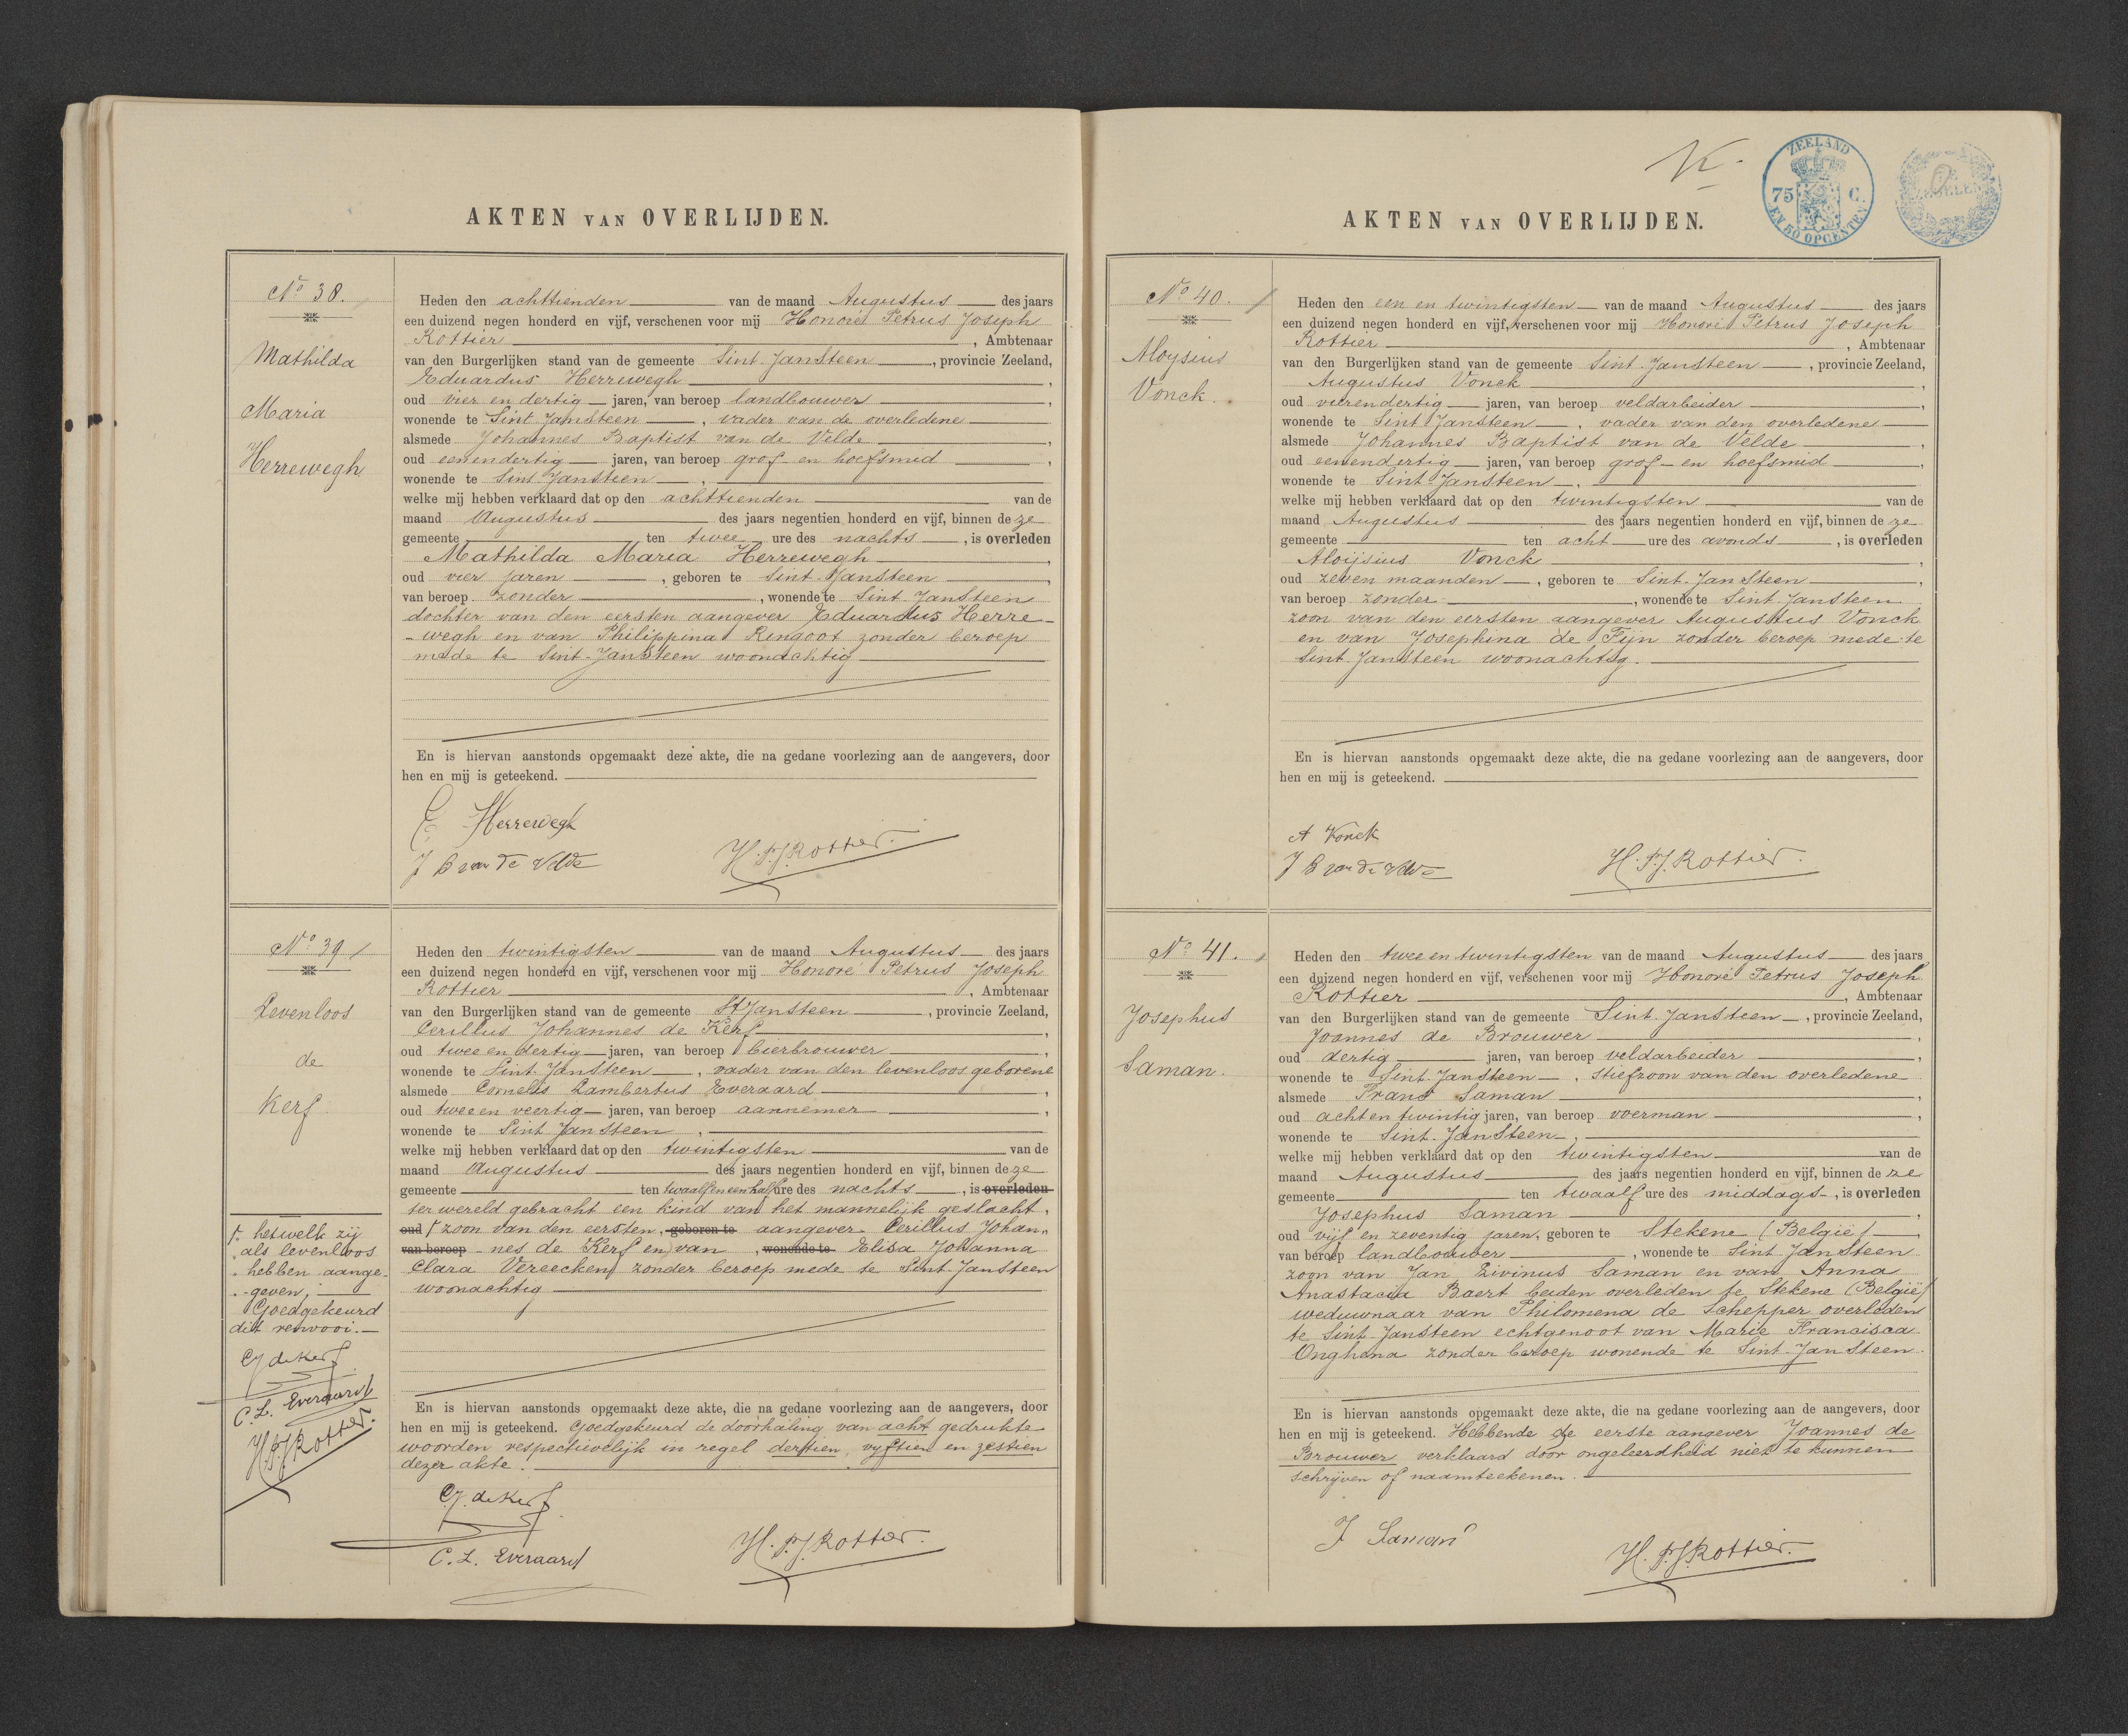 AKTEN VAN OVERLIJDEN.
No 38.
Mathilda
Maria
Herrewegh
Heden den achttienden van de maand Augustus des jaars
een duizend negen honderd en vijf, verschenen voor mij Honoré Petrus Joseph
Rottier, Ambtenaar
van den Burgerlijken stand van de gemeente Sint-Jansteen, provincie Zeeland,
Eduardus Herrewegh,
oud vier en dertig jaren, van beroep landbouwer,
wonende te Sint Jansteen, vader van de overledene
alsmede Johannes Baptist van de Velde,
oud eenendertig jaren, van beroep grof en hoefsmid,
wonende te Sint Jansteen,
welke mij hebben verklaard dat op den achttienden van de
maand Augustus des jaars negentien honderd en vijf, binnen deze
gemeente ten twee ure des nachts, is overleden
Mathilda Maria Herrewegh,
oud vier jaren, geboren te Sint-Jansteen,
van beroep zonder, wonende te Sint Jansteen
dochter van den eersten aangever Eduardus Herre-
-wegh en van Philippina Ringoot zonder beroep
mede te Sint-Jansteen woonachtig
En is hiervan aanstonds opgemaakt deze akte, die na gedane voorlezing aan de aangevers, door
hen en mij is geteekend.
E Herrewegh
J B van de Velde
H.P.J Rottier.
No 39
Levenloos
de
Kerf
Heden den twintigsten van de maand Augustus des jaars
een duizend negen honderd en vijf, verschenen voor mij Honoré Petrus Joseph
Rottier, Ambtenaar
van den Burgerlijken stand van de gemeente St Jansteen, provincie Zeeland,
Cerillus Johannes de Kerf,
oud twee en dertig jaren, van beroep bierbrouwer,
wonende te Sint-Jansteen, vader van den levenloos geborene
alsmede Cornelis Lambertus Everaard,
oud twee en veertig jaren, van beroep aannemer,
wonende te Sint Jansteen,
welke mij hebben verklaard dat op den twintigsten van de
maand Augustus des jaars negentien honderd en vijf, binnen deze
gemeente ten twaalf en een half ure des nachts, is overleden
ter wereld gebracht een kind van het mannelijk geslacht,
oud zoon van den eersten, geboren te aangever Cerillus Johan„
van beroep nes de Kerf en van, wonende te Elisa Johanna
Clara Vereecken zonder beroep mede te Sint-Jansteen
woonachtig
hetwelk zij
als levenloos
hebben aange-
-geven,
Goedgekeurd
dit renvooi.
CJ de Kerf
C. L. Everaard
H.P.J Rottier.
En is hiervan aanstonds opgemaakt deze akte, die na gedane voorlezing aan de aangevers, door
hen en mij is geteekend. Goedgekeurd de doorhaling van acht gedrukte
woorden respectievelijk in regel dertien, vyftien en zestien
dezer akte.
C.J. de Kerf
C. L. Everaard
H.P.J Rottier.
ZEELAND
75 C.
EN 50 OPCENTEN
AKTEN VAN OVERLIJDEN.
No 40.
Aloysius
Vonck.
Heden den een en twintigsten van de maand Augustus des jaars
een duizend negen honderd en vijf, verschenen voor mij Honoré Petrus Joseph
Rottier, Ambtenaar
van den Burgerlijken stand van de gemeente Sint-Jansteen, provincie Zeeland,
Augustus Vonck,
oud vierendertig jaren, van beroep veldarbeider,
wonende te Sint Jansteen, vader van den overledene
alsmede Johannes Baptist van de Velde,
oud eenendertig jaren, van beroep grof- en hoefsmid,
wonende te Sint-Jansteen,
welke mij hebben verklaard dat op den twintigsten van de
maand Augustus des jaars negentien honderd en vijf, binnen deze
gemeente ten acht ure des avonds, is overleden
Aloijsius Vonck,
oud zeven maanden, geboren te Sint-Jansteen,
van beroep zonder, wonende te Sint-Jansteen
zoon van den eersten aangever Augustus Vonck
en van Josephina de Fijn zonder beroep mede te
Sint-Jansteen woonachtig.
En is hiervan aanstonds opgemaakt deze akte, die na gedane voorlezing aan de aangevers, door
hen en mij is geteekend.
A Vonck
J B van de Velde
H.P.J. Rottier.
No 41.
Josephus
Saman.
Heden den twee en twintigsten van de maand Augustus des jaars
een duizend negen honderd en vijf, verschenen voor mij Honoré Petrus Joseph
Rottier, Ambtenaar
van den Burgerlijken stand van de gemeente Sint-Jansteen, provincie Zeeland,
Joannes de Brouwer,
oud dertig jaren, van beroep veldarbeider,
wonende te Sint-Jansteen, stiefzoon van den overledene
alsmede Frans Saman,
oud achtentwintig jaren, van beroep voerman,
wonende te Sint-Jansteen,
welke mij hebben verklaard dat op den twintigsten van de
maand Augustus des jaars negentien honderd en vijf, binnen deze
gemeente ten twaalf ure des middags, is overleden
Josephus Saman,
oud vijf en zeventig jaren, geboren te Stekene (België),
van beroep landbouwer, wonende te Sint Jansteen
zoon van Jan Livinus Saman en van Anna
Anastacia Baert beiden overleden te Stekene (België)
weduwnaar van Philomena de Schepper overleden
te Sint-Jansteen echtgenoot van Marie Francisca
Onghena zonder beroep wonende te Sint-Jansteen.
En is hiervan aanstonds opgemaakt deze akte, die na gedane voorlezing aan de aangevers, door
hen en mij is geteekend. Hebbende de eerste aangever Joannes de
Brouwer verklaard door ongeleerdheid niet te kunnen
schrijven of naamteekenen.
J Saman
H.P.J Rottier.